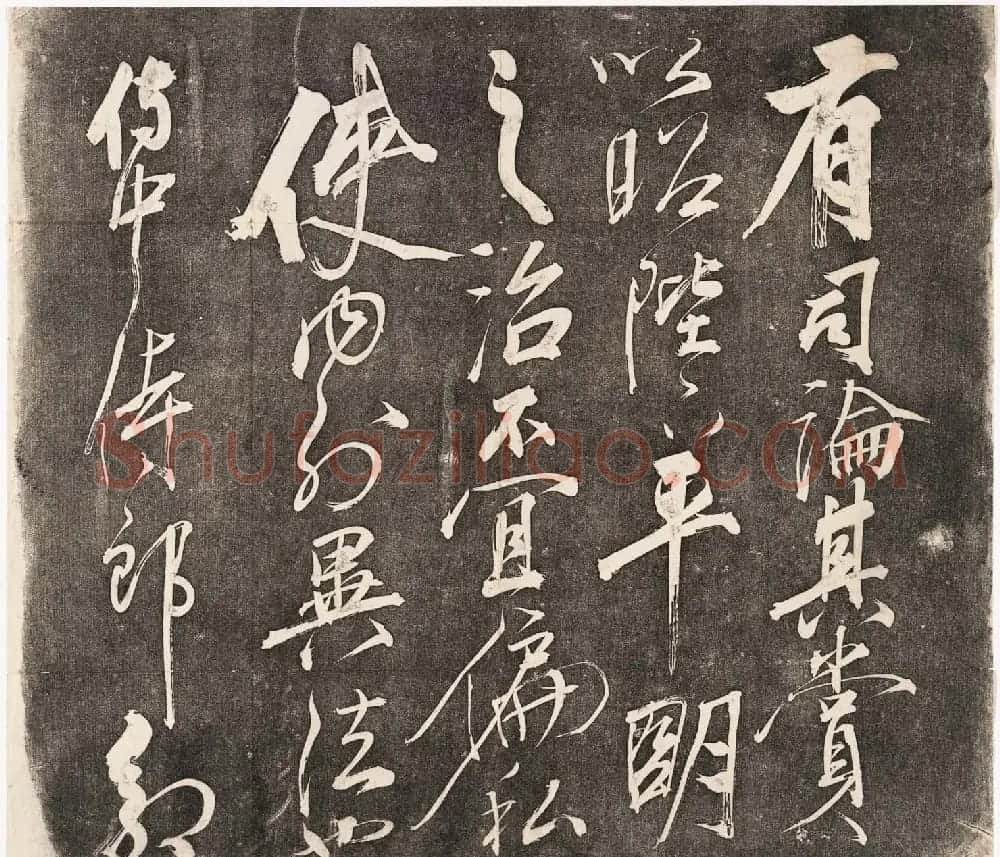 有司論其賞
以昭陛平明
之治不宜偏私
使內外異法也
侍中侍郎郭
Shufaziliao.COM